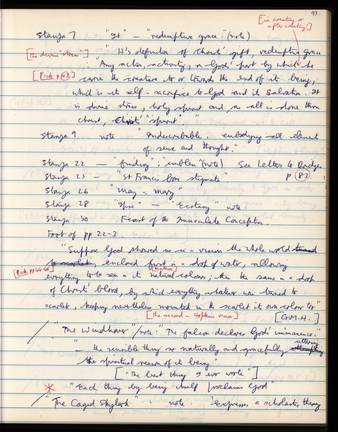 93.
[in creating or after creating]
Stanza 7 "It" — "redemptive grace" (note)
[the divine stress"] H's definition of Christ's gift, redemptive grace
"Any action, activity, on God's part by which he
carries the creature to or towards the end of its being,
which is its self-sacrifice to God and its salvation. It
is divine stress, holy spirit and, as all is done thro
Christ, Christ's 'spirit'"
Stanza 9 note — Indescribable — embodying all elements
of sense and thought.
Stanza 22 — "finding": emblem (note) See Letter to Bridges
Stanza 23 — "St Francis bore stigmata" p (83)
Stanza 26 "May — Mary"
Stanza 28 "Ipse" — "Ecstasy" note
Stanza 30 Feast of the Immaculate Conception
Foot of pp 22-3
"Suppose God showed us in a vision the whole world
enclosed first in a drop of water, allowing
everything to be seen in its natural colours; then the same in a drop
of Christ's blood, by which everything whatever was turned to
scarlet, keeping nevertheless mounted in the scarlet its own colour too
[G.M.H.]
"The Windhover" / note: "The falcon declares God's immanence.
— the sensible thing so naturally and gracefully uttering
the spiritual reason of its being
["The best thing I ever wrote"]
* "Each thing by being itself proclaims God"
"The Caged Skylark" note "expresses a scholastic theory